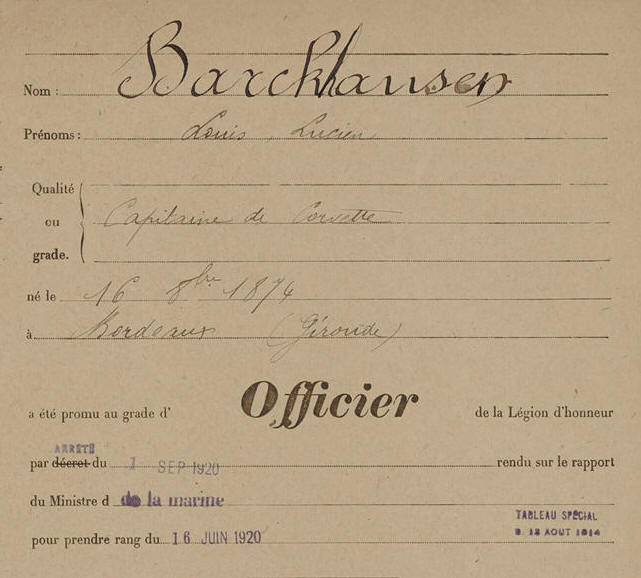 Nom : Barckhausen
Prénoms : Louis, Lucien
Qualité
ou Capitaine de Corvette
grade.
né le 16 8bre 1874
à Bordeaux (Gironde)
a été promu au grade d' Officier de la Légion d'honneur
ARRÊTÉ
par décret du 1 SEP 1920 rendu sur le rapport
du Ministre d de la marine
TABLEAU SPÉCIAL
pour prendre rang du 16 JUIN 1920
13 AOUT 1914